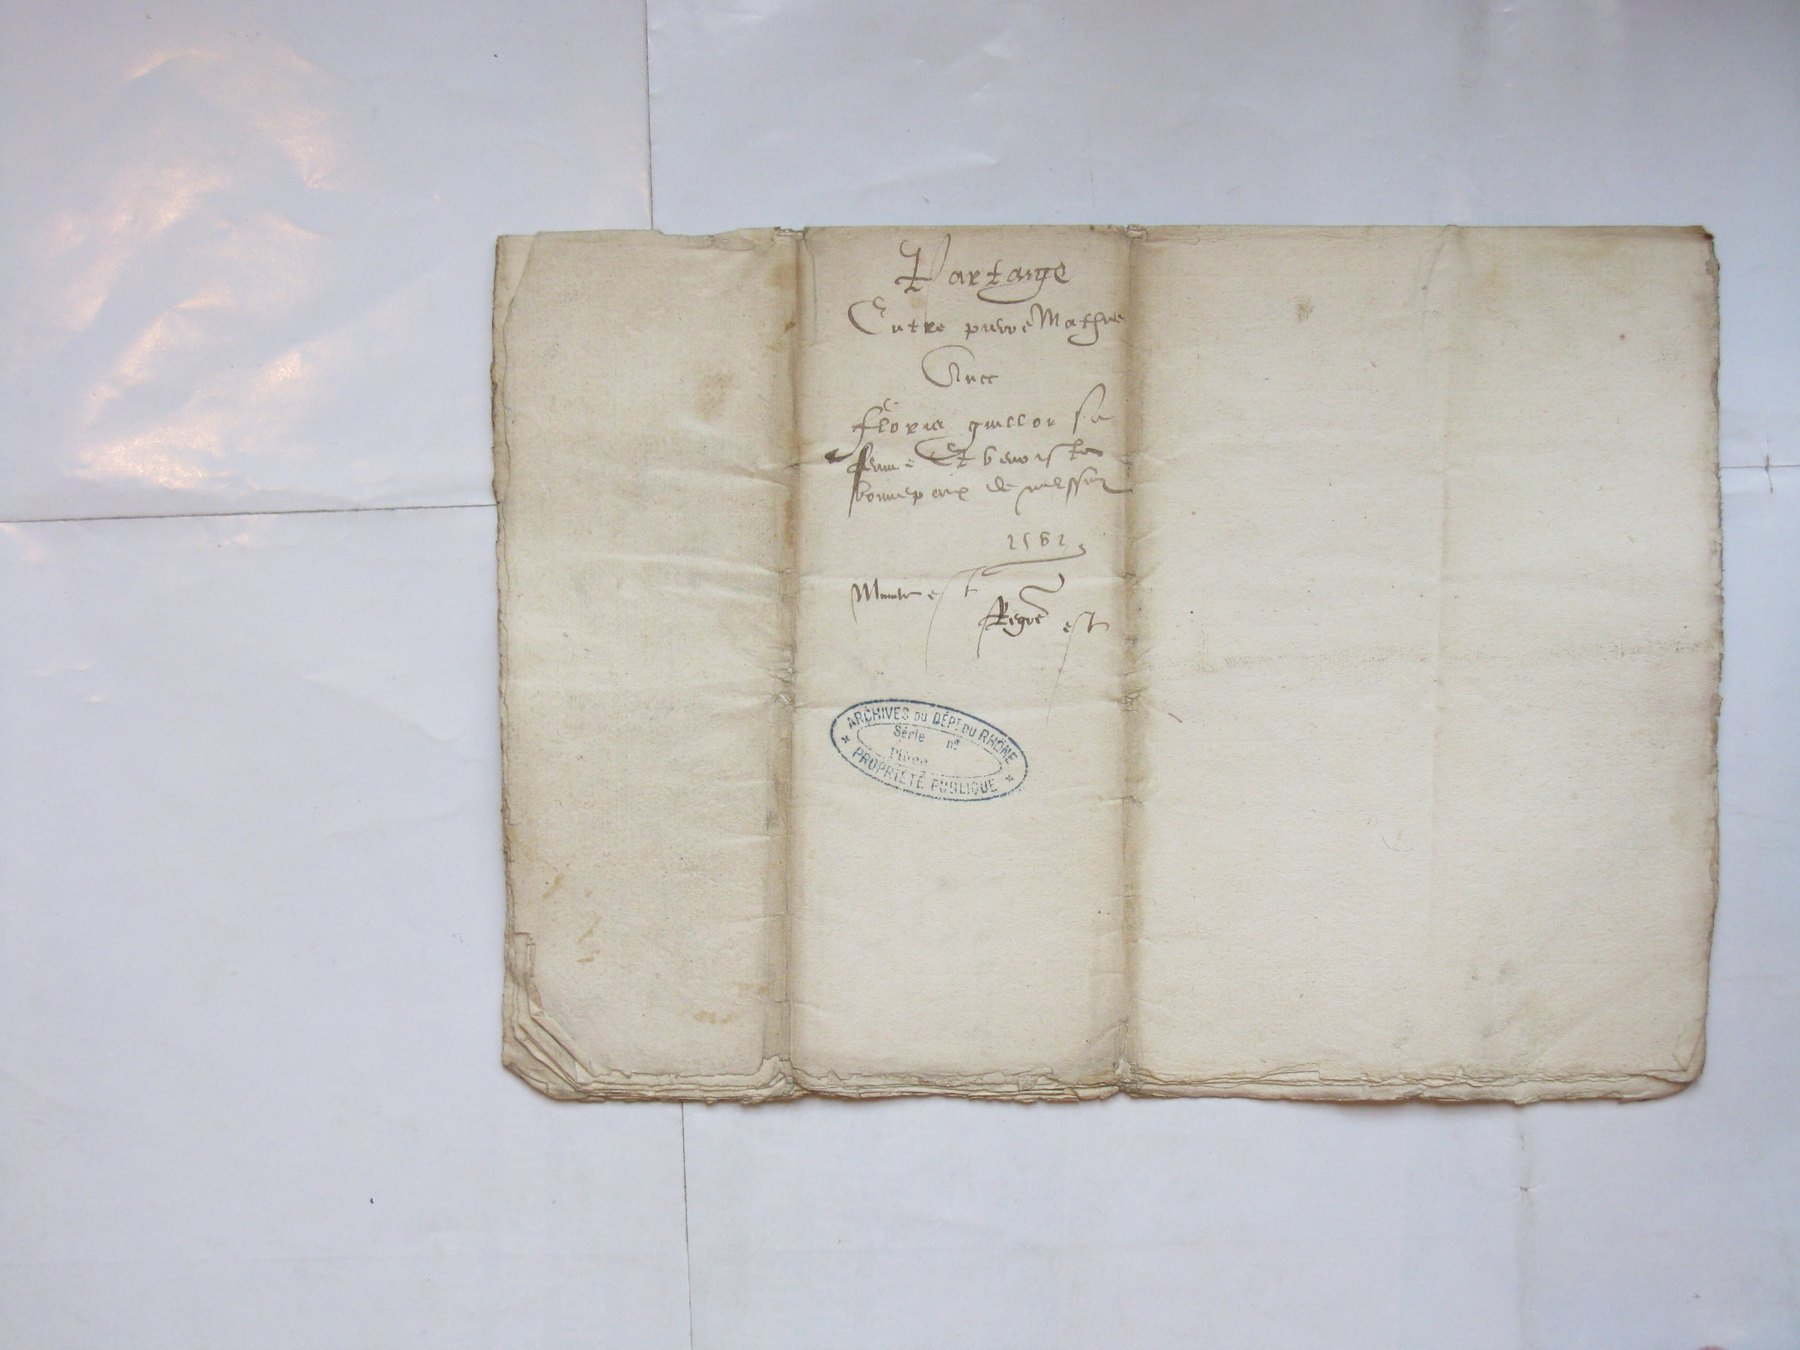 Partaige
Entre pierre Mathieu
Avec
Florie guillon sa
femme Et benoiste
bonnepaix de messimy
1561
Minute est
Regre est
ARCHIVES DU DÉPT DU RHÔNE
Série n°
Pièce
PROPRIÉTÉ PUBLIQUE